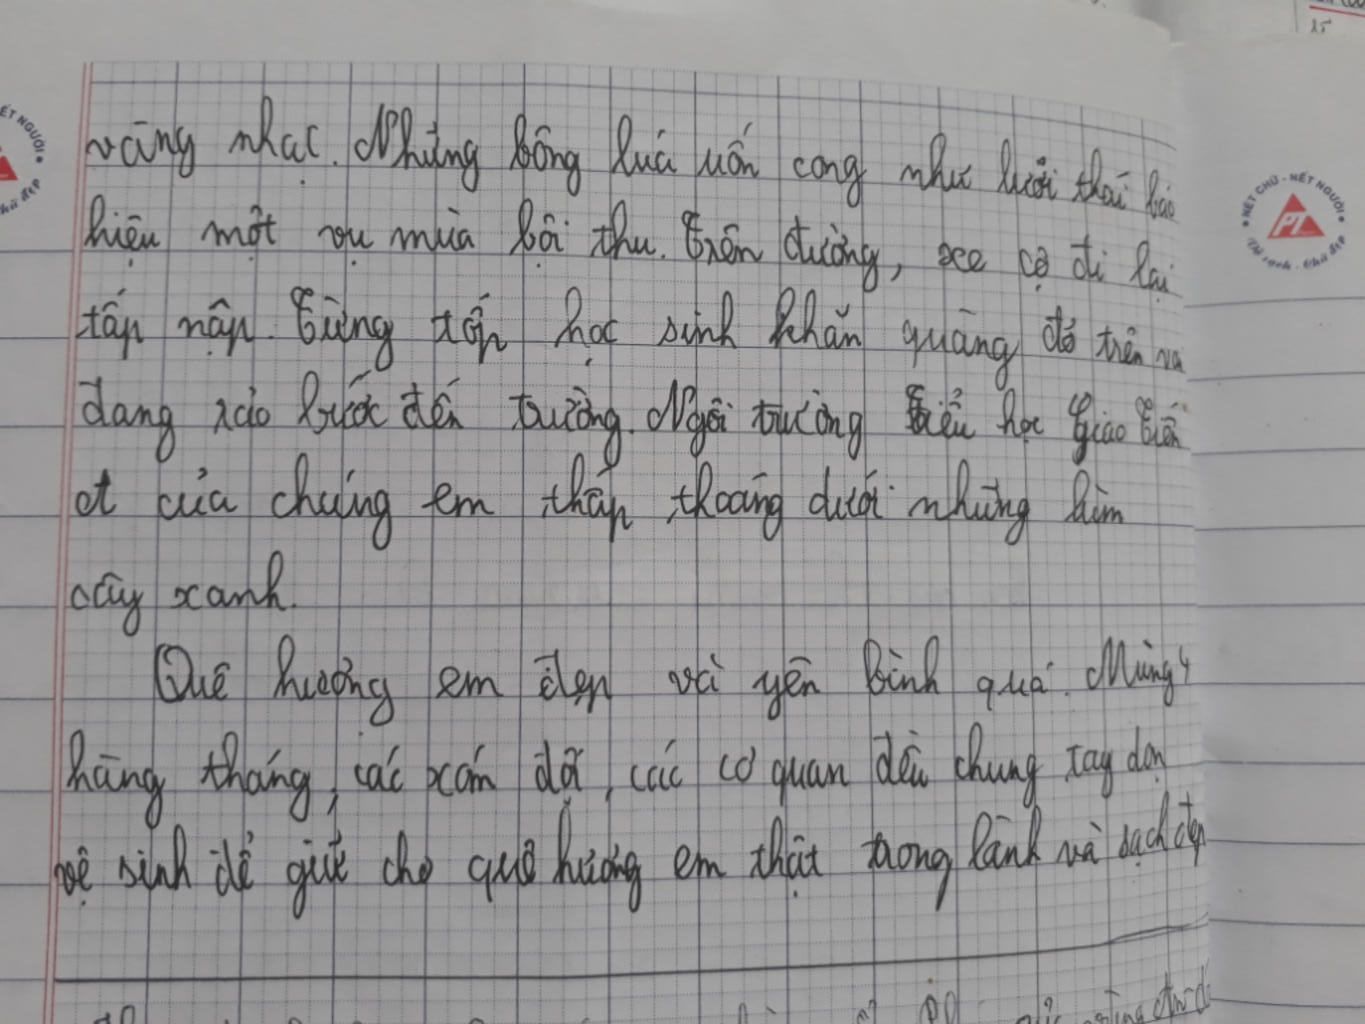 vàng nhạt. Những bông lúa uốn cong như lưỡi thái báo
hiệu một vụ mùa bội thu. Trên đường, xe cộ đi lại
tấp nập. Từng tốp học sinh khăn quàng đỏ trên va
đang rảo bước đến trường. Ngôi trường Tiểu học Giao Tiến
A của chúng em thấp thoáng dưới những hàm
cây xanh.
Quê hương em đẹp và yên bình quá. Mùng 4
hàng tháng, các xóm đội, các cơ quan đều chung tay dọn
vệ sinh để giữ cho quê hương em thật trong lành và sạch đẹp
NÉT CHỮ - NẾT NGƯỜI
PT
ÉT NGƯỜI